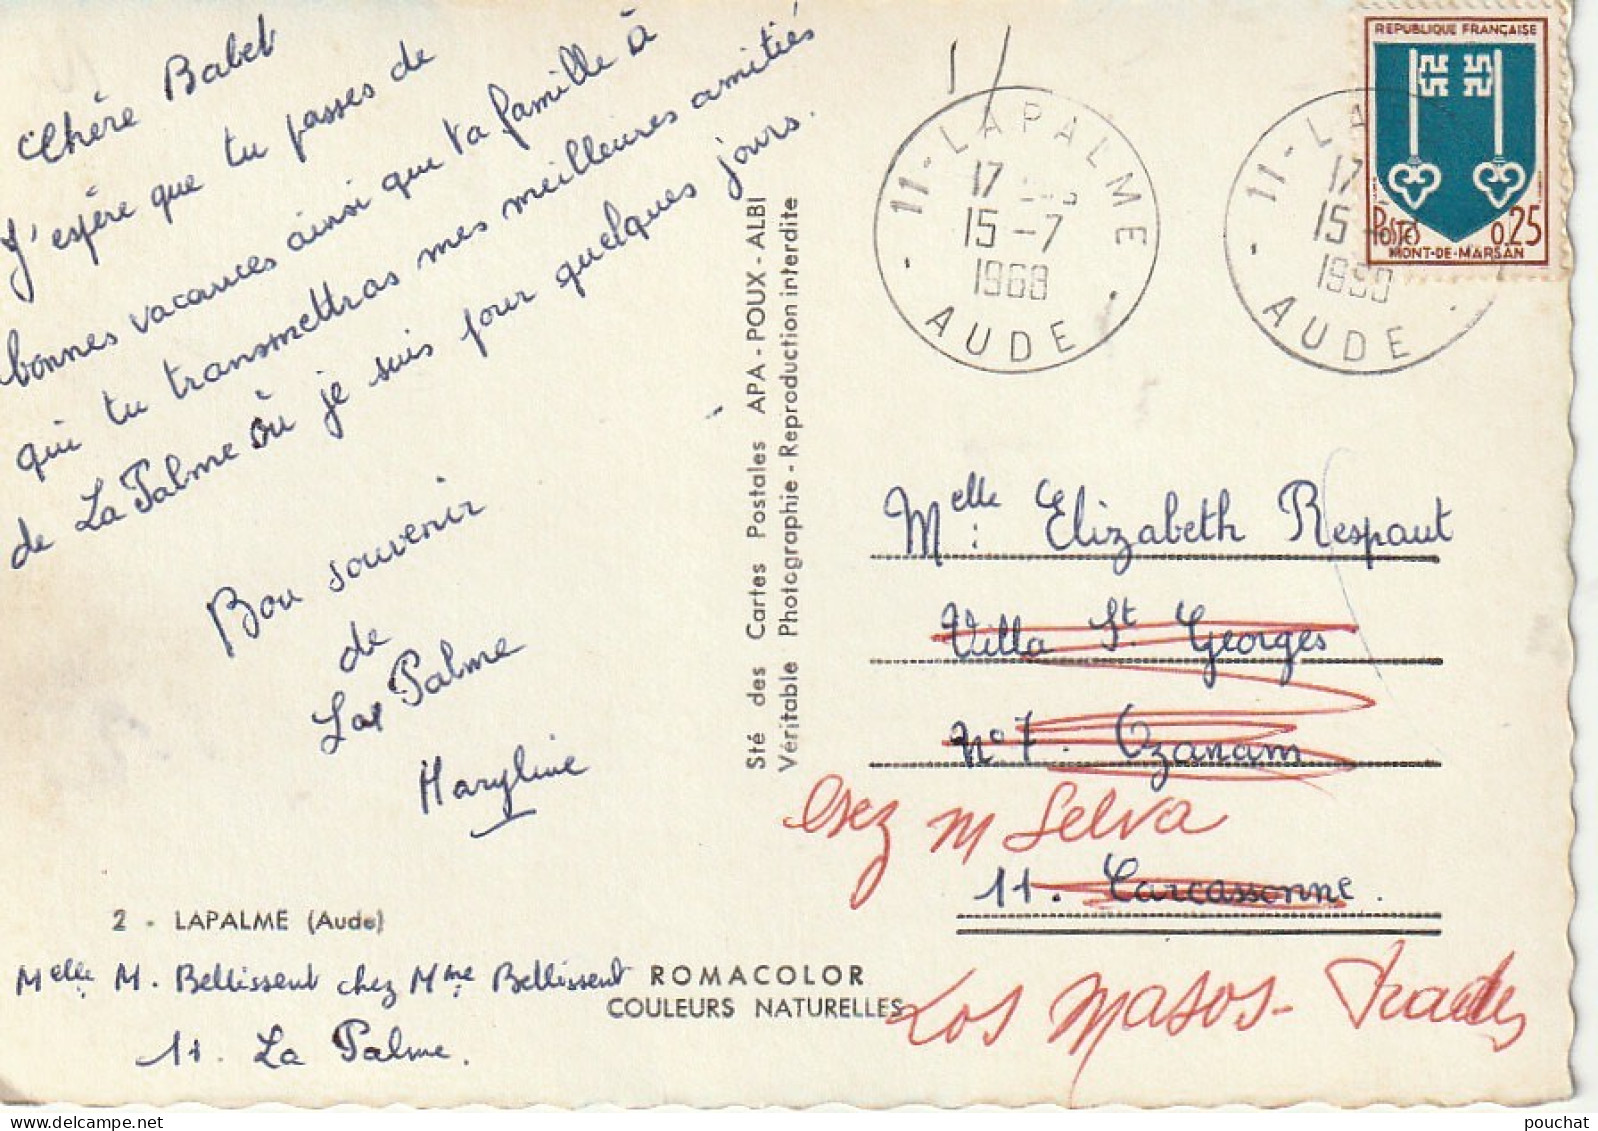 Chère Babet
J'espère que tu passes de
bonnes vacances ainsi que ta famille à
qui tu transmettras mes meilleures amitiés
de La Palme où je suis pour quelques jours.
Bon souvenir
de
La Palme
Maryline
2 - LAPALME (Aude)
Melle M. Bellissent chez Mme Bellissent
11. La Palme.
ROMACOLOR
COULEURS NATURELLES
Sté des Cartes Postales APA - POUX - ALBI
Véritable Photographie - Reproduction interdite
11 - LAPALME
17
15 - 7
1968
AUDE
11 - LA
17
15 -
AUDE
REPUBLIQUE FRANÇAISE
POSTES 0,25
MONT-DE-MARSAN
Melle: Elizabeth Respaut
Villa St Georges
N° 7. Ozanam
chez M Selva
11. Carcassonne.
Los Masos - Prades
pouchat